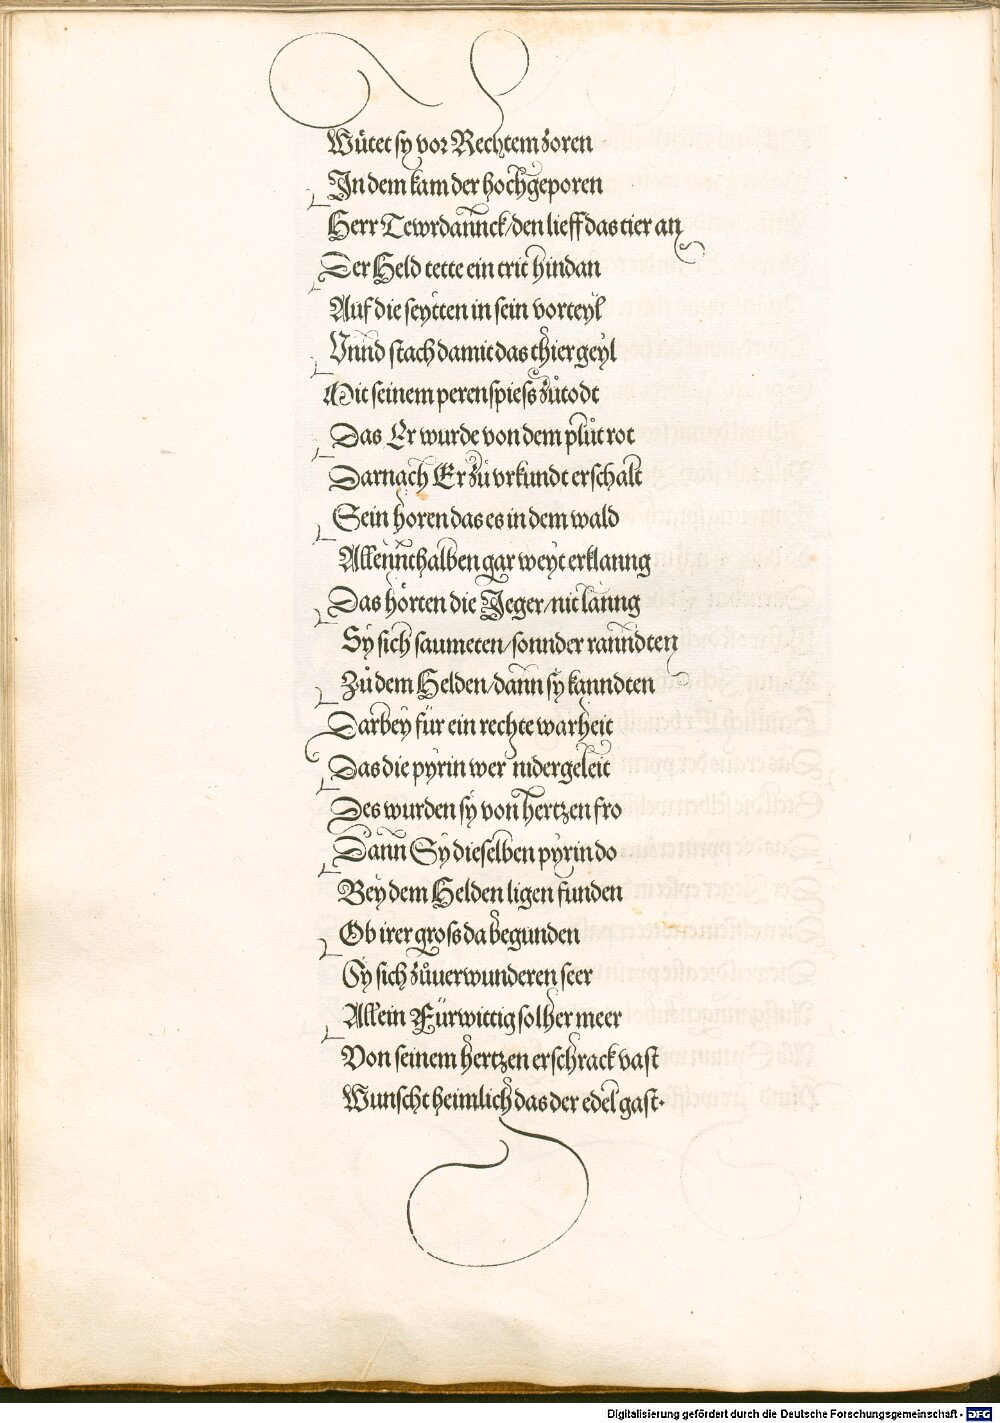 Wuͤtet sy vor Rechtem zoren
In dem kam der hochgeporen
Herr Tewrdannck/den lieff das tier an
Der Held tette ein trit hindan
Auf die seytten in sein vorteyl
Vnnd stach damit das thier geyl
Mit seinem perenspiess zůtodt
Das Er wurde von dem plůt rot
Darnach Er zů vrkundt erschalt
Sein horen das es in dem wald
Allennthalben gar weyt erklanng
Das hörten die Jeger/nit lanng
Sy sich saumeten/sonnder ranndten
Zů dem Helden/dann sy kanndten
Darbey für ein rechte warheit
Das die pyrin wer nidergeleit
Des wurden sy von hertzen fro
Dann Sy dieselben pyrin do
Bey dem Helden ligen funden
Ob irer gross da begunden
Sy sich zůuerwunderen seer
Allein Fürwittig solher meer
Von seinem hertzen erschrack vast
Wunscht heimlich das der edel gast.
Digitalisierung gefördert durch die Deutsche Forschungsgemeinschaft - DFG